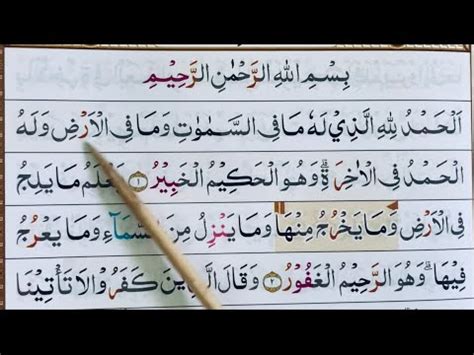 بِسْمِ اللهِ الرَّحْمٰنِ الرَّحِيْمِ
اَلْحَمْدُ لِلّٰهِ الَّذِيْ لَهٗ مَا فِى السَّمٰوٰتِ وَمَا فِى الْاَرْضِ وَلَهُ
الْحَمْدُ فِى الْاٰخِرَةِ ؕ وَهُوَ الْحَكِيْمُ الْخَبِيْرُ ۝۱ يَعْلَمُ مَا يَلِجُ
فِى الْاَرْضِ وَمَا يَخْرُجُ مِنْهَا وَمَا يَنْزِلُ مِنَ السَّمَآءِ وَمَا يَعْرُجُ
فِيْهَا ؕ وَهُوَ الرَّحِيْمُ الْغَفُوْرُ ۝۲ وَقَالَ الَّذِيْنَ كَفَرُوْا لَا تَاْتِيْنَا